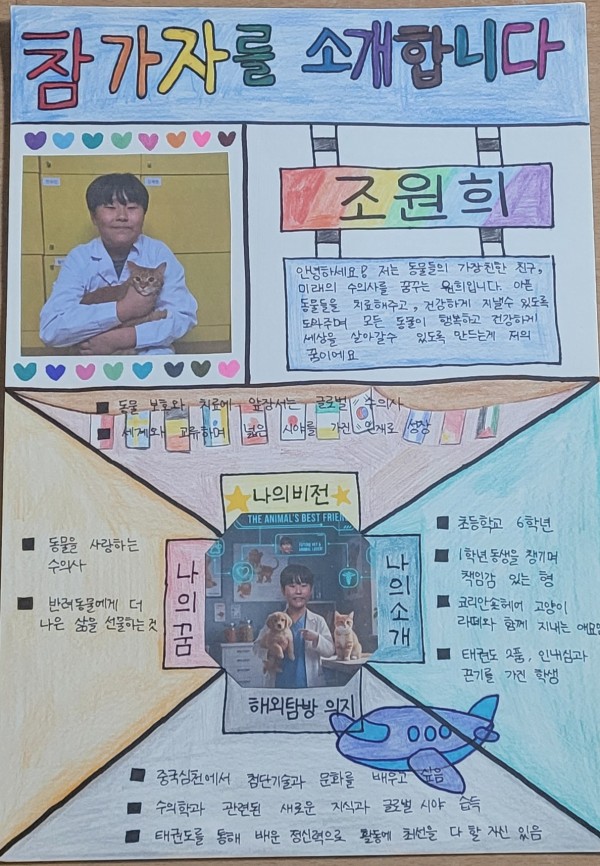 참가자를 소개합니다
조원희
안녕하세요? 저는 동물들의 가장친한 친구,
미래의 수의사를 꿈꾸는 원희입니다. 아픈
동물들을 치료해주고, 건강하게 지낼수 있도록
도와주며 모든 동물이 행복하고 건강하게
세상을 살아갈수 있도록 만드는게 저의
꿈이에요
동물 보호와 치료에 앞장서는 글로벌 수의사
세계와 교류하며 넓은 시야를 가진 인재로 성장
나의비전
THE ANIMAL'S BEST FRIEN
나의꿈
동물을 사랑하는
수의사
반려동물에게 더
나은 삶을 선물하는것
나의소개
초등학교 6학년
1학년동생을 챙기며
책임감 있는 형
코리안숏헤어 고양이
라떼와 함께 지내는
태권도 2품, 인내심과
끈기를 가진 학생
해외탐방 의지
중국심천에서 첨단기술과 문화를 배우고 싶음
수의학과 관련된 새로운 지식과 글로벌 시야 습득
태권도를 통해 배운 정신력으로 활동에 최선을 다 할 자신 있음